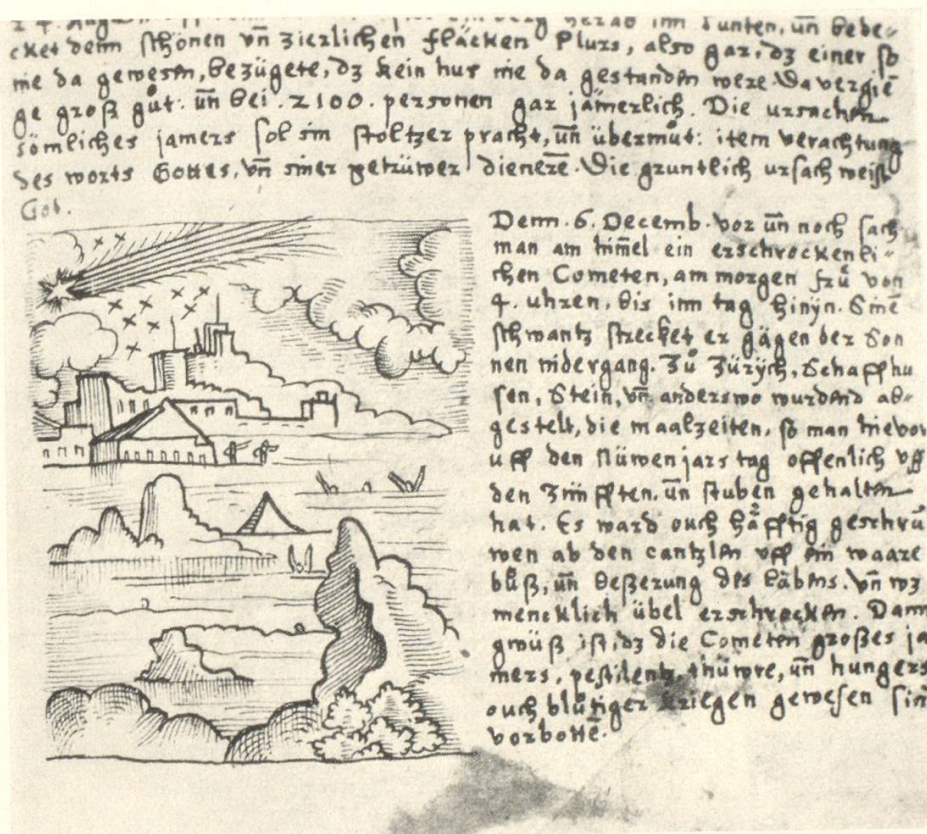 herab inn Tunten, uñ bede-
cket denn schönen vñ zierlichen fläcken Plurs, also gar, dz einer so
nie da gewesen, bezügete, dz kein hus nie da gestanden were. Da vergiē
ge groß gůt. uñ bei .2100. personen gar jämerlich. Die ursachen
sömliches jamers sol sin stoltzer pracht, uñ übermůt: item verachtung
des worts Gottes, vñ siner getrüwer dienerē. Die gruntlich ursach weist
Got.
Denn .6. Decemb. vor uñ noch sach
man am him̄el ein erschrockenli-
chen Cometen, am morgen frů von
4. uhren, bis inn tag hinÿn. Sinē
schwantz strecket er gägen der Son
nen nidergang. Zů Zürÿch, Schaffhu
sen, Stein, vñ anderswo wurdend ab-
gestelt, die maalzeiten, so man hievor
uff den Nüwenjars tag offenlich vff
den Zünfften, uñ stuben gehalten
hat. Es ward ouch häfftig geschrů
wen ab den cantzlen vff ein waare
bůß, uñ beßerung des läbens. Vñ wz
mencklich übel erschrocken. Dann
gwüß ist, dz die Cometen großes ja
mers, pestilentz, thüwre, uñ hungers
ouch blůtiger kriegen gewesen sin
vorbottē.